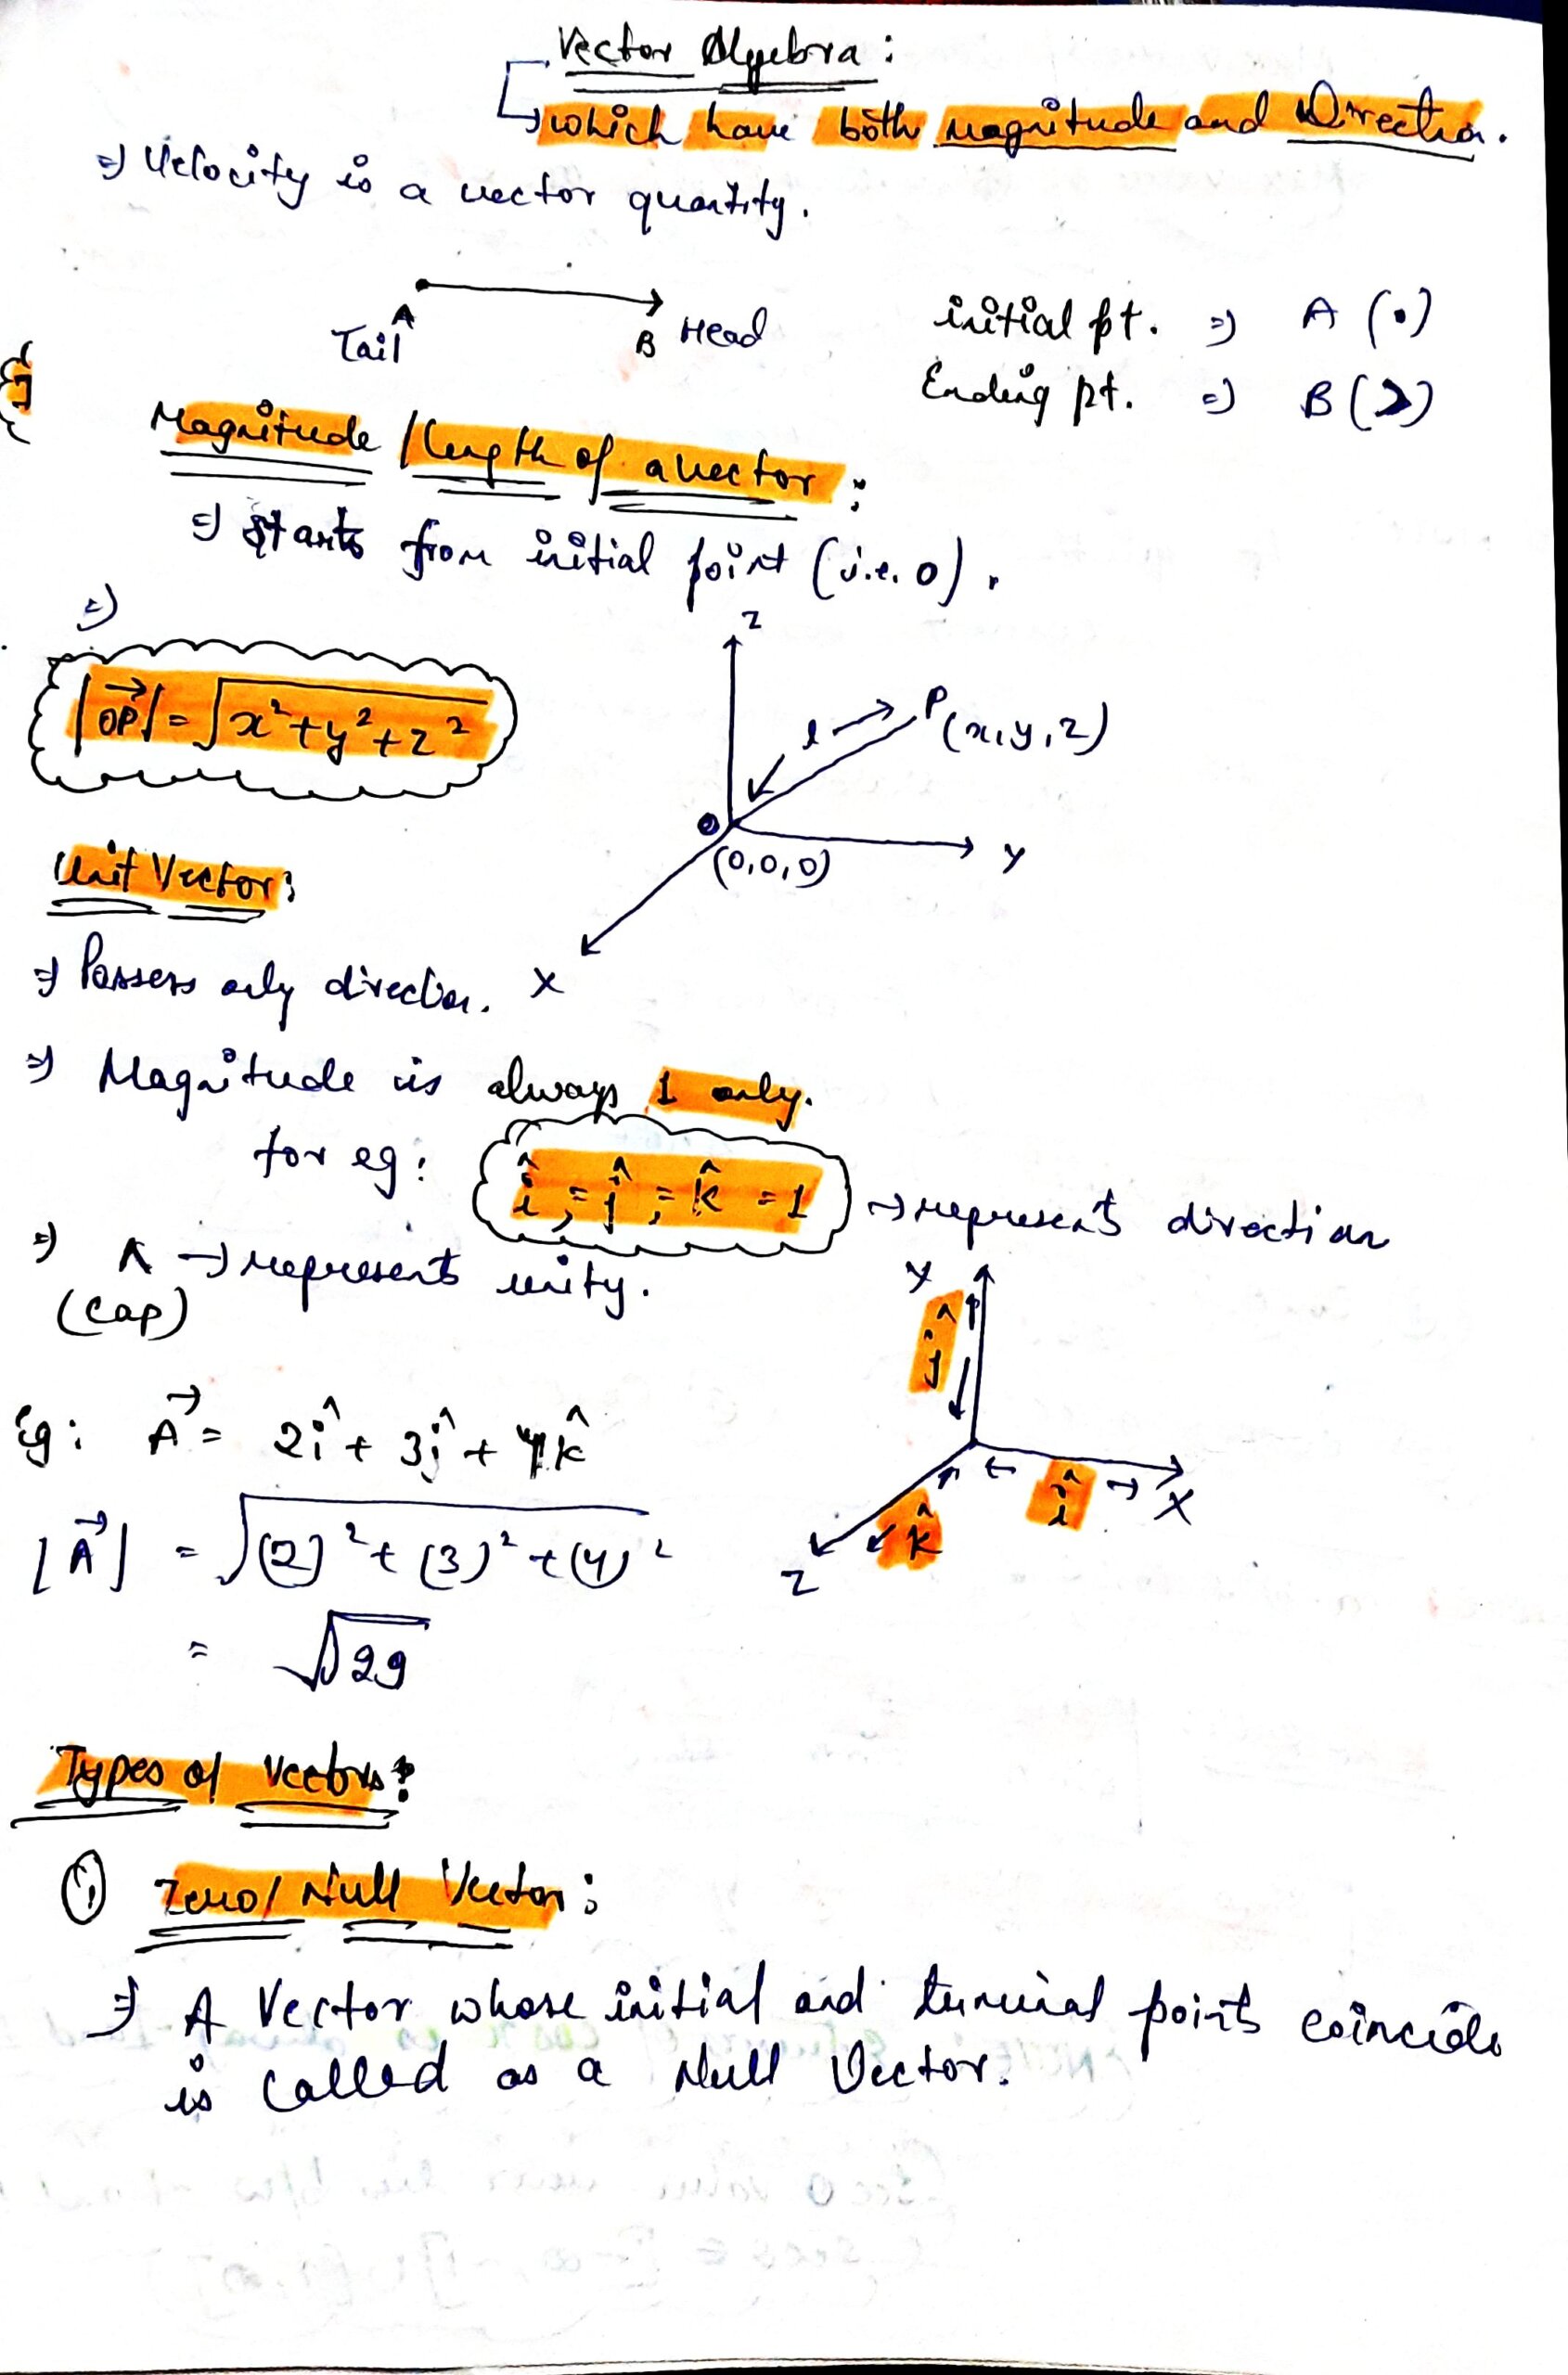 Vector Algebra:
↳ which have both magnitude and Direction.
⇒ Velocity is a vector quantity.
Tail A
B Head
initial pt. ⇒ A (•)
Ending pt. ⇒ B (>)
Magnitude / length of a vector:
⇒ starts from initial point (i.e. 0).
⇒
|OP→| = √x²+y²+z²
z
l
P(x,y,z)
(0,0,0)
y
x
Unit Vector:
⇒ Possess only direction.
⇒ Magnitude is always 1 only.
for eg: î, = ĵ, = k̂ = 1 → represents direction
⇒ ^ → represents unity.
(cap)
y
ĵ
î
x
k̂
z
Eg: A→ = 2î + 3ĵ + 4k̂
|A→| = √(2)² + (3)² + (4)²
= √29
Types of Vectors:
① Zero/ Null Vector:
⇒ A Vector whose initial and terminal points coincide
is called as a Null Vector.